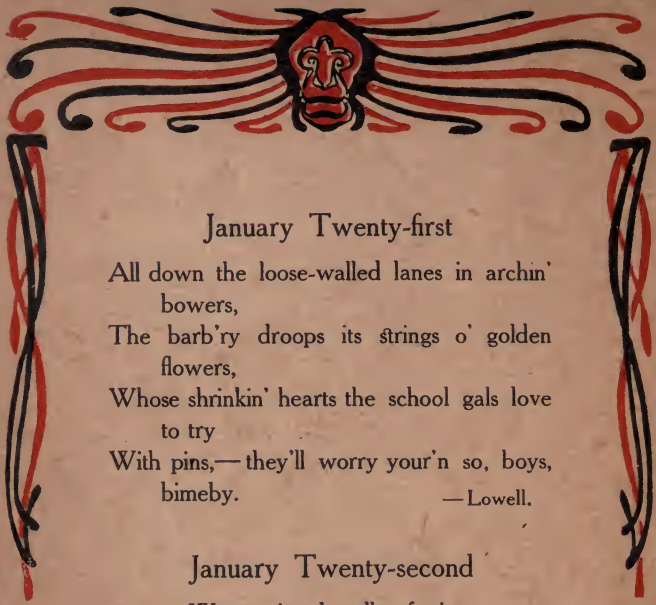 January Twenty-first
All down the loose-walled lanes in archin'
bowers,
The barb'ry droops its strings o' golden
flowers,
Whose shrinkin' hearts the school gals love
to try
With pins,—they'll worry your'n so, boys,
bimeby. —Lowell.
January Twenty-second